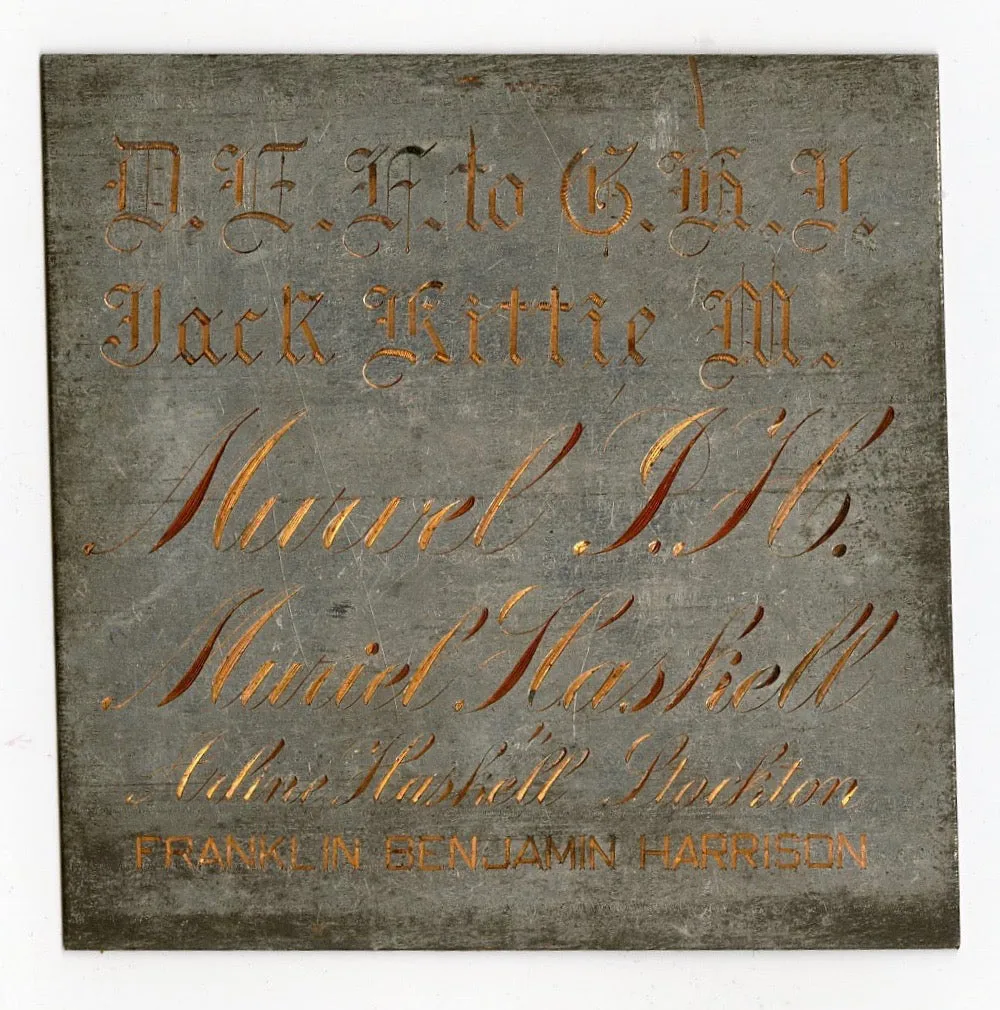 D. E. F. to G. H. I.
Jack Kittie M.
Murvel I. H.
Muriel Haskell
Arline Haskell Stockton
FRANKLIN BENJAMIN HARRISON